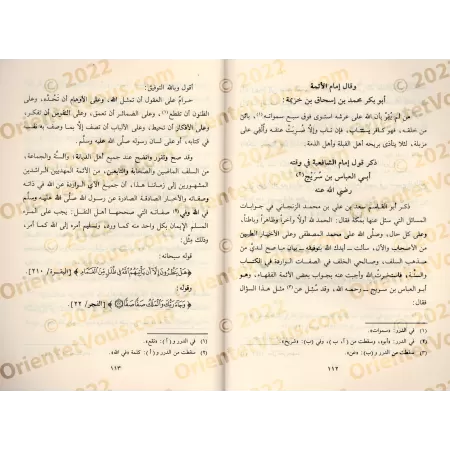 وقال إمام الأئمة
أبو بكر محمد بن إسحاق بن خزيمة:
من لم يُقِرّ بأن الله على عرشه استوى فوق سبع سمواته(١)، بائن
من خلقه، فهو كافر يستتاب، فإن تاب وإلا ضُرِبَتْ عنقه وأُلقي على
مزبلة، لئلا يتأذى بريحه أهل القبلة وأهل الذمة.
ذكر قول إمام الشافعية في وقته
أبي العباس بن سُرَيْج(٢)
رضي الله عنه
ذكر أبو القاسم سعد بن علي بن محمد الزنجاني في جوابات
المسائل التي سئل عنها بمكة فقال: الحمد لله أولاً وآخراً وظاهراً وباطناً،
وعلى كل حال، وصلى الله على محمد المصطفى وعلى الأخيار الطيبين
من الأصحاب والآل، سألت ـ أيدك الله بتوفيقه ـ بيان ما صح لدي من
مذهب السلف، وصالحي الخلف في الصفات الواردة في الكتاب
والسنّة، فاستخرت الله وأجبت عنه بجواب بعض الأئمة الفقهاء، وهو
أبو العباس بن سريج ـ رحمه الله ـ وقد سُئل عن(٣) مثل هذا السؤال
فقال:
(١) في الدرر: «سموات».
(٢) في الدرر: «أبو»، وسقطت من (أ، ب)، وفي (ب): «شريح».
(٣) سقطت من الدرر و(ب): «عن».
١١٢
أقول وبالله التوفيق:
حرامٌ على العقول أن تمثل الله، وعلى الأوهام أن تَحُدّه، وعلى
الظنون أن تقطع(١)، وعلى الضمائر أن تعمق، وعلى النفوس أن تفكر،
وعلى الأفكار أن تحيط، وعلى الألباب أن تصف إلا بما وصف به نفسه
في كتابه، أو على لسان رسوله صلى الله عليه وسلم.
وقد صح وتقرر واتضح عند جميع أهل الديانة، والسنّة والجماعة،
من السلف الماضين والصحابة والتابعين، من الأئمة المهديين
المشهورين إلى زماننا هذا، أن جميع الآي الواردة عن الله في ذاته
وصفاته والأخبار الصادقة الصادرة عن رسول الله صلى الله عليه وسلم
في الله وفي(٢) صفاته التي صححها أهل النقل: يجب على المرء
المسلم الإيمان بكل واحد منه كما ورد، وتسليم أمره إلى الله كما أمر،
وذلك مثل:
قوله سبحانه:
﴿هَلْ يَنظُرُونَ إِلَّا أَن يَأْتِيَهُمُ اللَّهُ فِي ظُلَلٍ مِّنَ الْغَمَامِ﴾ [البقرة/ ٢١٠].
وقوله:
﴿وَجَاءَ رَبُّكَ وَالْمَلَكُ صَفًّا صَفًّا﴾ [الفجر/ ٢٢].
(١) في الدرر و(أ): «تقع».
(٢) سقطت من الدرر و(أ): كلمة «في الله».
١١٣
OrientetVous.com © 2022